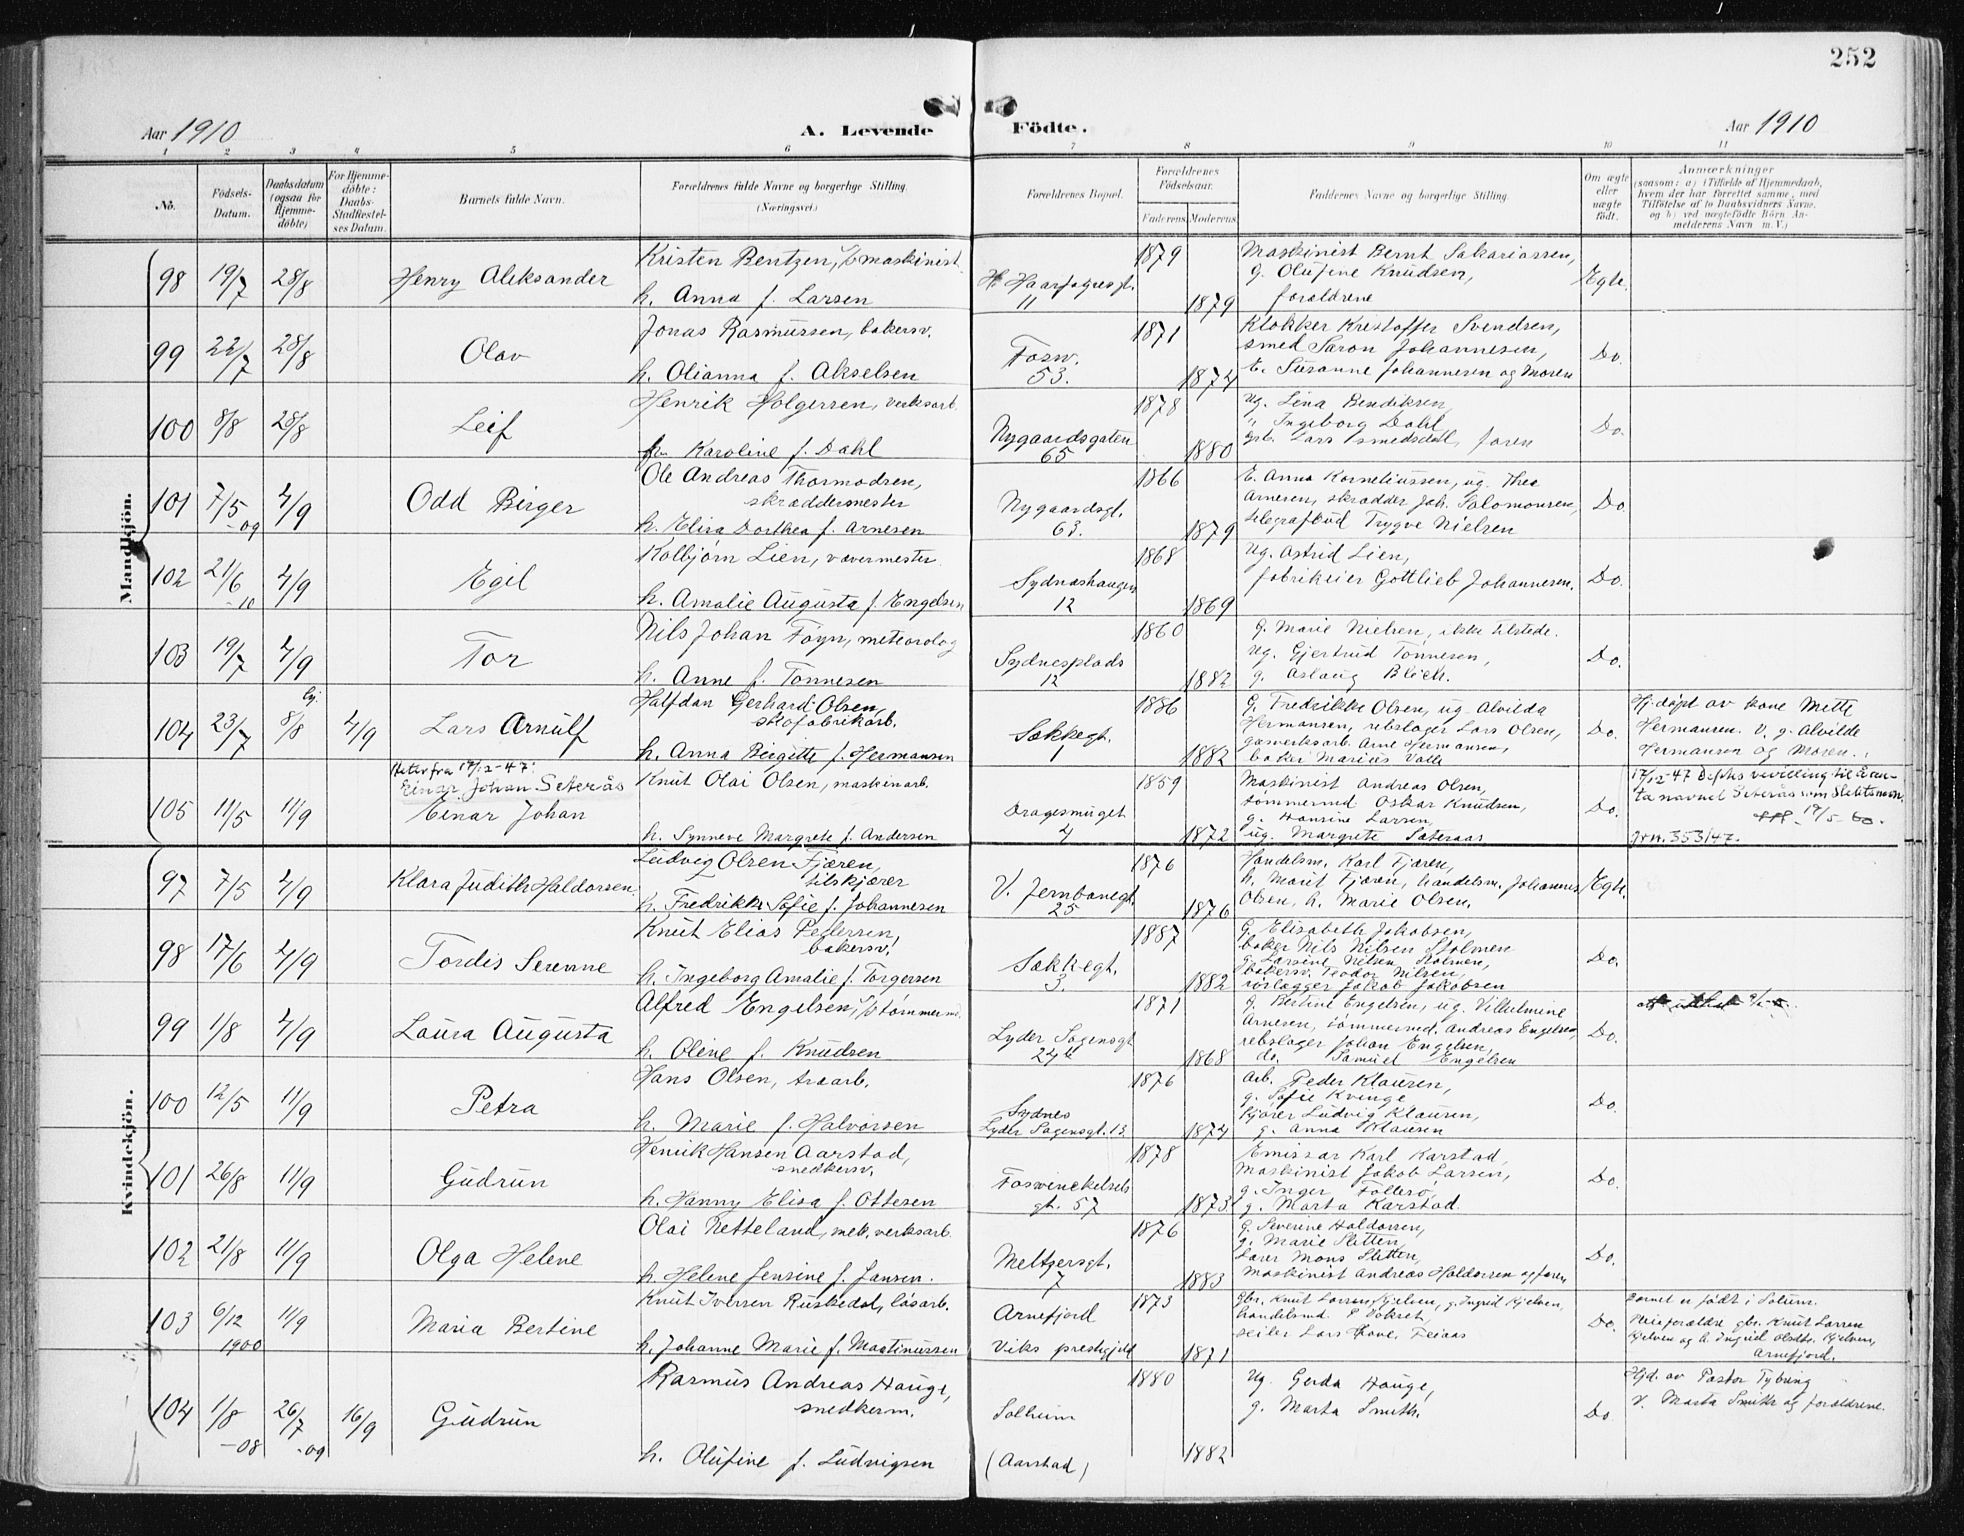 252
Aar 1910
A. Levende
Födte.
Aar 1910
1 2 3 4 5 6 7 8 9 10 11
No.
Födsels-Datum.
Daabsdatum (ogsaa for Hjemmedöbte)
For Hjemmedöbte: Daabs-Stadfæstelses Datum.
Barnets fulde Navn.
Forældrenes fulde Navne og borgerlige Stilling.
(Næringsvei.)
Forældrenes Bopæl.
Forældrenes Födselsaar.
Faderens Moderens
Faddernes Navne og borgerlige Stilling.
Om ægte eller uægte født.
Anmærkninger
(saasom: a) i Tilfælde af Hjemmedaab,
hvem der har forrettet samme, med
Tilföielse af to Daabsvidners Navne,
og b) ved uægtefödte Börn An-
melderens Navn m. V.)
Mandkjön.
98 19/7 28/8 Henry Aleksander
Kristen Bentzen, maskinist
h. Anna f. Larsen
H. Haarfagresgt. 11
1879 1879
Maskinist Bernt Sakariassen,
g. Olufine Knudsen,
forældrene
Egte.
99 22/7 28/8 Olav
Jonas Rasmussen, bakersv.
h. Olianna f. Akselsen
Fosw. 53.
1871 1874
Klokker Kristoffer Svendsen,
smed Saron Johannesen,
E. Susanne Johannesen og Moren
Do.
100 8/8 28/8 Leif
Henrik Holgersen, verksarb.
h. Karoline f. Dahl
Nygaardsgaten 65
1878 1880
Ug. Lina Bendiksen,
" Ingeborg Dahl,
gbr. Lars Smedsdal, faren
Do.
101 7/5 -09 4/9 Odd Birger
Ole Andreas Thormodsen,
skræddermester
h. Elisa Dorthea f. Arnesen
Nygaardsgt. 63.
1866 1879
E. Anna Korneliussen, ug. Thea
Arnesen, skrædder Joh. Salomonsen,
telegrafbud Trygve Nielsen
Do.
102 21/6 -10 4/9 Egil
Kolbjørn Lien, vævermester
h. Amalie Augusta f. Engelsen
Sydneshaugen 12
1868 1869
Ug. Astrid Lien,
fabrikeier Gottlieb Johannesen.
Do.
103 19/7 4/9 Tor
Nils Johan Föyn, meteorolog
h. Anne f. Tönnesen
Sydnesplads 12
1860 1882
G. Marie Nielsen, ikke tilstede.
Ug. Gjertrud Tönnesen,
g. Aslaug Blich.
Do.
104 23/7 8/8 4/9 Lars Arnulf
Halfdan Gerhard Olsen,
skofabrikarb.
h. Anna Birgitte f. Hermansen
Sækkegt. 1
1886 1882
G. Fredrikke Olsen, ug. Alvilda
Hermansen, rebslager Lars Olsen,
gasverksarb. Arne Hermansen,
baker Marius Valle
Do.
Hj. døpt av kone Mette
Hermansen. V. g. Alvilde
Hermansen og Moren.
105 11/5 11/9
Heter fra 17/12-47:
Einar Johan Seterås
Einar Johan
Knut Olai Olsen, maskinarb.
h. Synneve Margrete f. Andersen
Dragesmuget 4
1859 1872
Maskinist Andreas Olsen,
tømmermd Oskar Knudsen,
g. Hansine Larsen,
ug. Margrete Sæteraas
Do.
17/12-47 Depts bevilling til å an-
ta navnet Seterås som slektsnavn.
Jrn. 353/47.
Kvindekjön.
97 7/5 4/9 Klara Judith Haldorsen
Ludvig Olsen Fjæren,
h. Fredrikke Sofie f. Johannesen
V. Jernbanegt. 25
1876 1876
Handelsm. Karl Fjæren,
h. Marit Fjæren, handelsm. Johannes
Olsen, h. Marie Olsen.
Egte.
98 17/6 4/9 Tordis Serenne
Knut Elias Pedersen,
bakersv.
h. Ingeborg Amalie f. Torgersen
Sækkegt. 3.
1887 1882
G. Elisabeth Jakobsen,
baker Nils Nilsen Stolmen
g. Larsine Nilsen Stolmen,
bakersv. Teodor Nilsen,
rørlægger Jakob Jakobsen
Do.
99 1/8 4/9 Laura Augusta
Alfred Engelsen, tømmermd.
h. Oline f. Knudsen
Lyder Sagensgt 24b
1871 1868
g. Bertine Engelsen, ug. Vilhelmine
Arnesen, tømmermd. Andreas Engelsen,
rebslager Johan Engelsen,
do. Samuel Engelsen
Do.
100 12/5 11/9 Petra
Hans Olsen, træarb.
h. Marie f. Halvorsen
Sydnes
Lyder Sagensgt. 13
1876 1874
Arb. Peder Klausen,
g. Sofie Kvinge
kjører Ludvig Klausen,
g. Anna Klausen
Do.
101 26/8 11/9 Gudrun
Henrik Hansen Aarstad,
snedkersv.
h. Hanny Elisa f. Ottesen
Foswinckelsgt. 57
1878 1873
Emissær Karl Karstad,
Maskinist Jakob Larsen,
g. Inger Follesø,
g. Marta Karstad.
Do.
102 21/8 11/9 Olga Helene
Olai Netteland, mek. verksarb.
h. Helene Jensine f. Jansen.
Meltzersgt. 7
1876 1883
g. Severine Haldorsen,
g. Marie Sletten,
Lærer Mons Sletten,
Maskinist Andreas Haldorsen og faren
Do.
103 6/12 1900 11/9 Maria Bertine
Knut Iversen Ruskedal, løsarb.
h. Johanne Marie f. Martinussen
Arnefjord
Viks prestegjeld
1873 1871
Gbr. Knut Larsen Kjelven, g. Ingrid Kjelven,
Do.
Barnet er født i Solum.
Pleieforældre gbr. Knut Larsen
Kjelven og h. Ingrid Olsdtr. Kjelven,
Arnefjord.
104 1/8 -08 26/7 -09 16/9 Gudrun
Rasmus Andreas Hauge,
snedkerm.
h. Olufine f. Ludvigsen
Solheim
(Aarstad)
1880 1882
Ug. Gerda Hauge,
g. Marta Smith.
Do
Hjd. av Pastor Tybring
V. Marta Smith og forældrene.